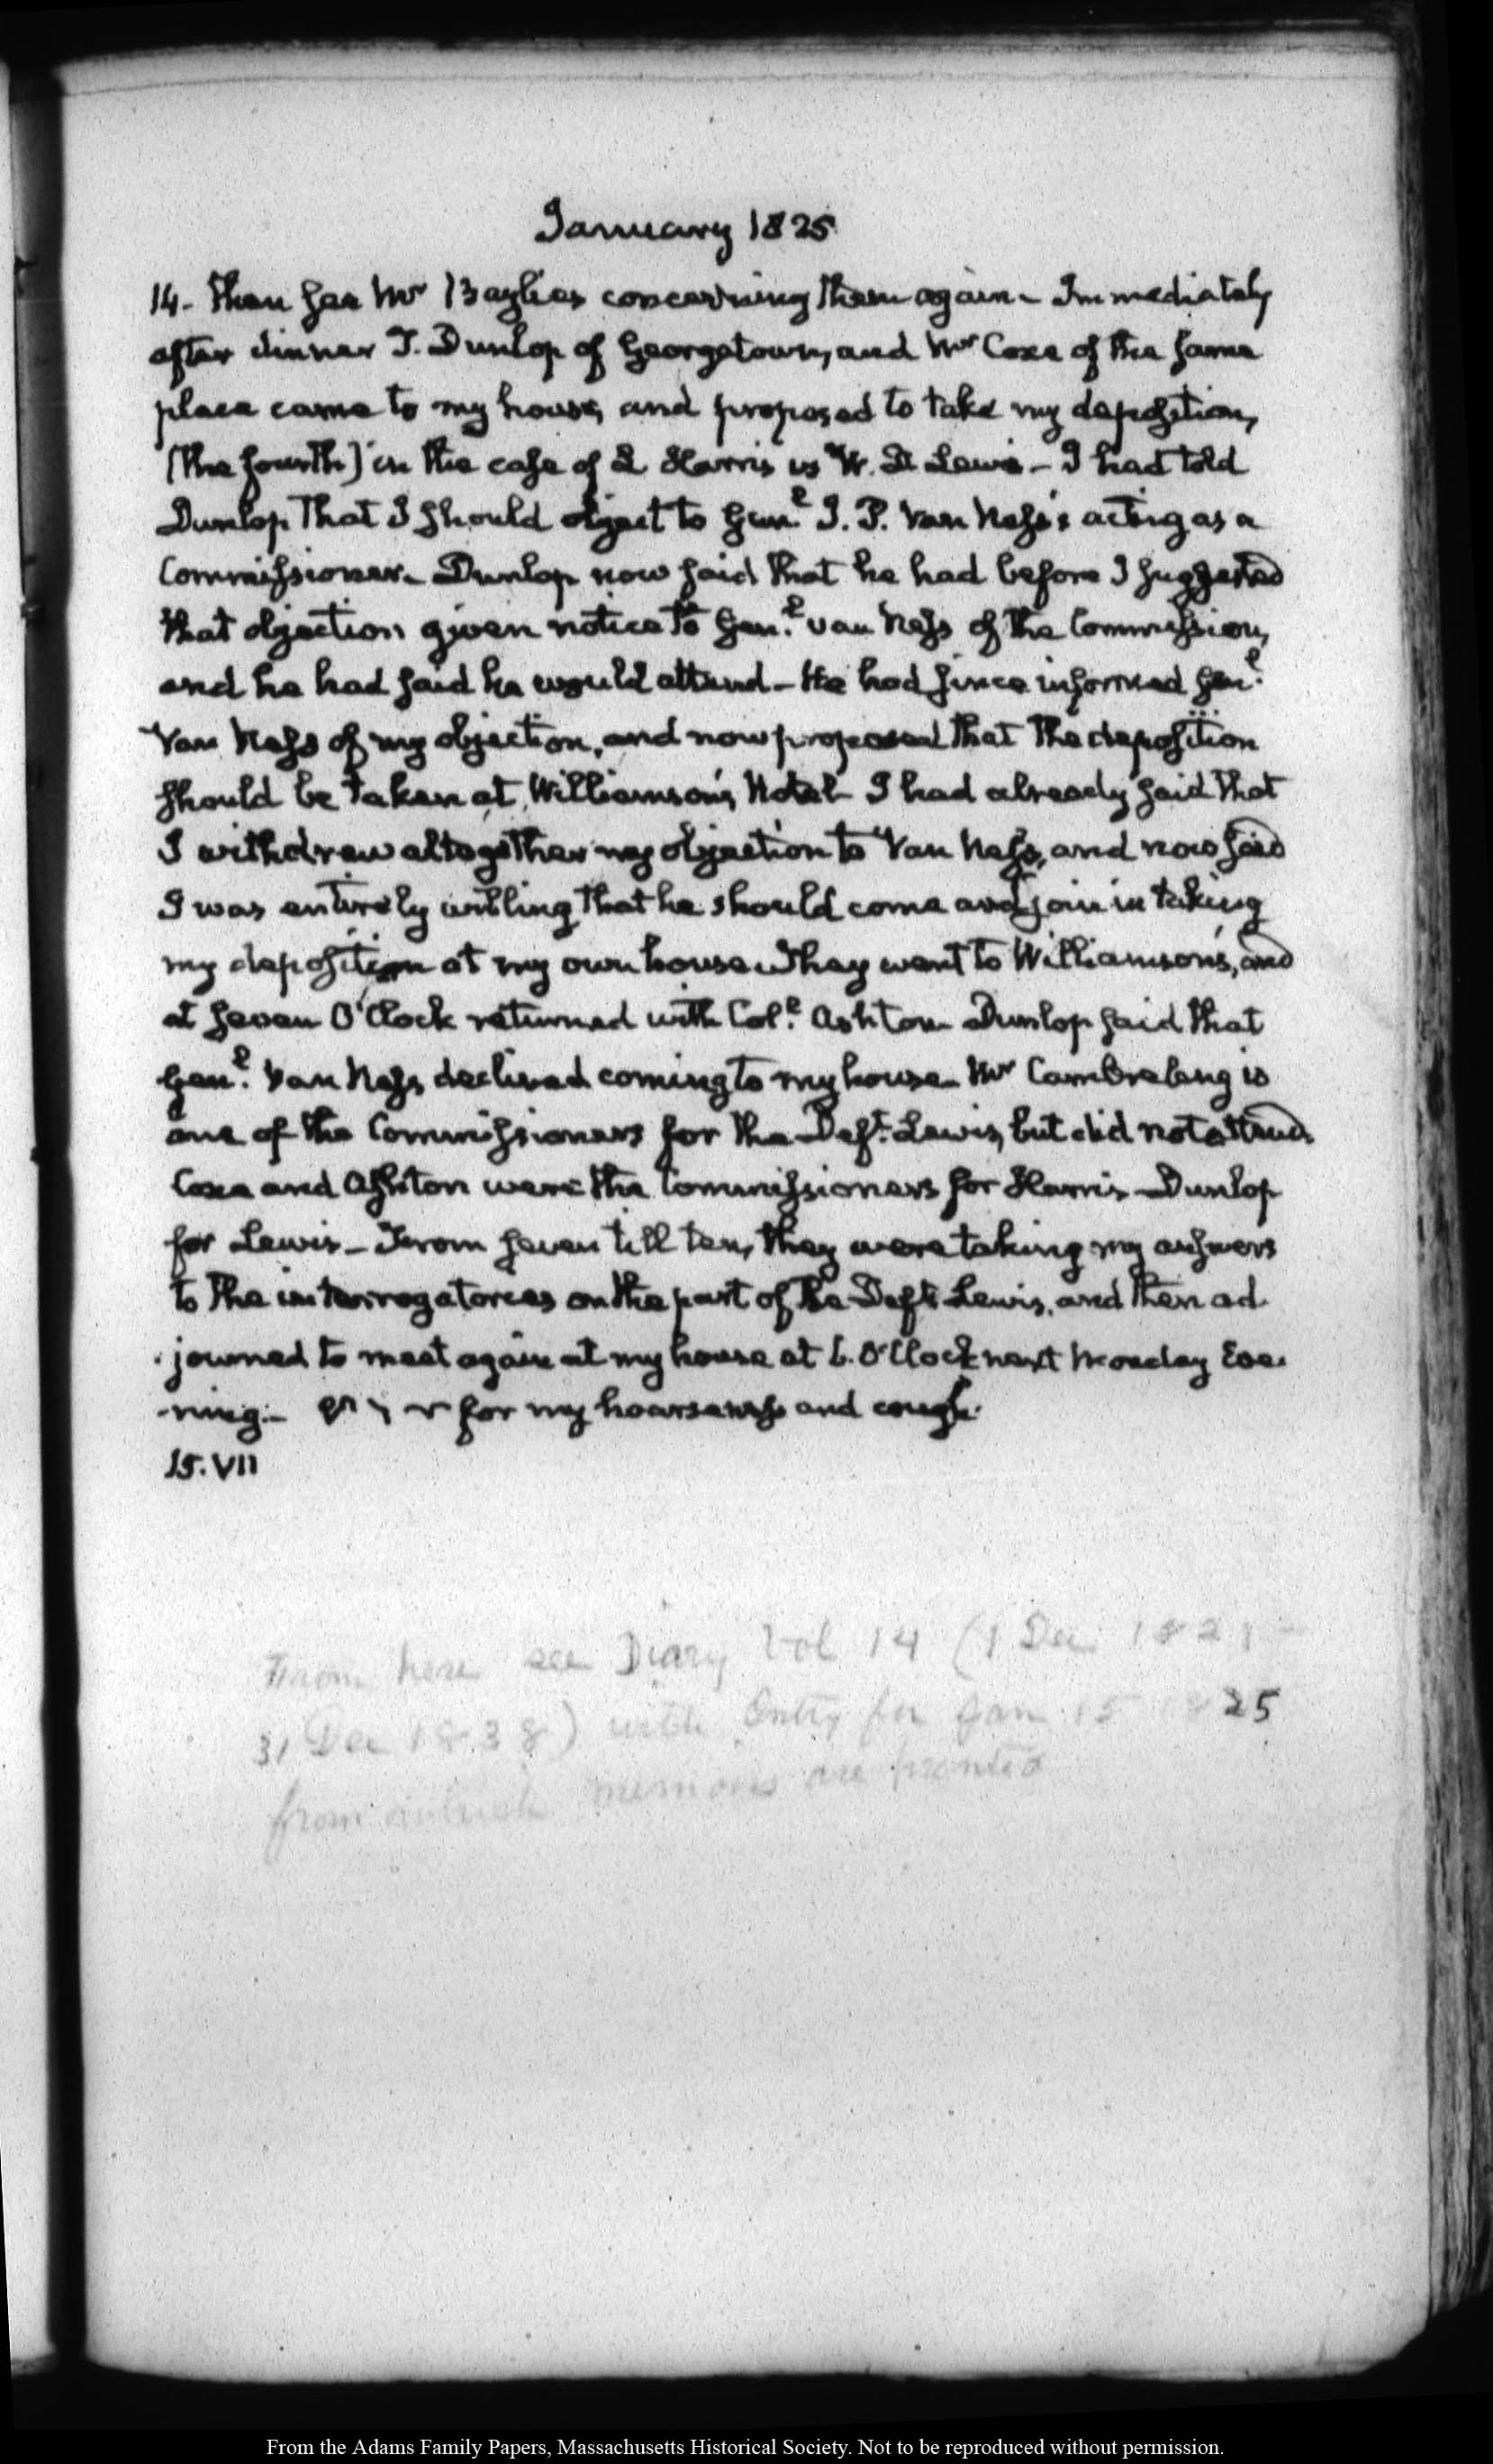 January 1825
14. then see Mr Baylies concerning them again – Immediately
after dinner J. Dunlop of Georgetown, and Mr Coxe of the same
place came to my house, and proposed to take my deposition,
(the fourth) in the case of L Harris vs W. D Lewis – I had told
Dunlop that I should object to Genl. J. P. Van Ness's acting as a
Commissioner – Dunlop now said that he had before I suggested
that objection given notice to Genl. Van Ness of the Commission,
and he had said he would attend – He had since informed Genl.
Van Ness of my objection, and now proposed that the deposition
should be taken at Williamson's Hotel – I had already said that
I withdrew altogether my objection to Van Ness, and now said
I was entirely willing that he should come and join in taking
my deposition at my own house – They went to Williamson's, and
at seven O'Clock returned with Coll. Ashton – Dunlop said that
Genl. Van Ness declined coming to my house – Mr Cambreleng is
one of the Commissioners for the Deft. Lewis, but did not attend.
Coxe and Ashton were the Commissioners for Harris – Dunlop
for Lewis – From seven till ten, they were taking my answers
to the interrogatories on the part of the Deft. Lewis, and then ad
journed to meet again at my house at 6. O'Clock next Monday Eve-
-ning. – for my hoarseness and cough.
15. VII
From here see Diary Vol 14 (1 Dec 1821 –
31 Dec 1838) with Entry for Jan 15 1825
from which memoirs are printed